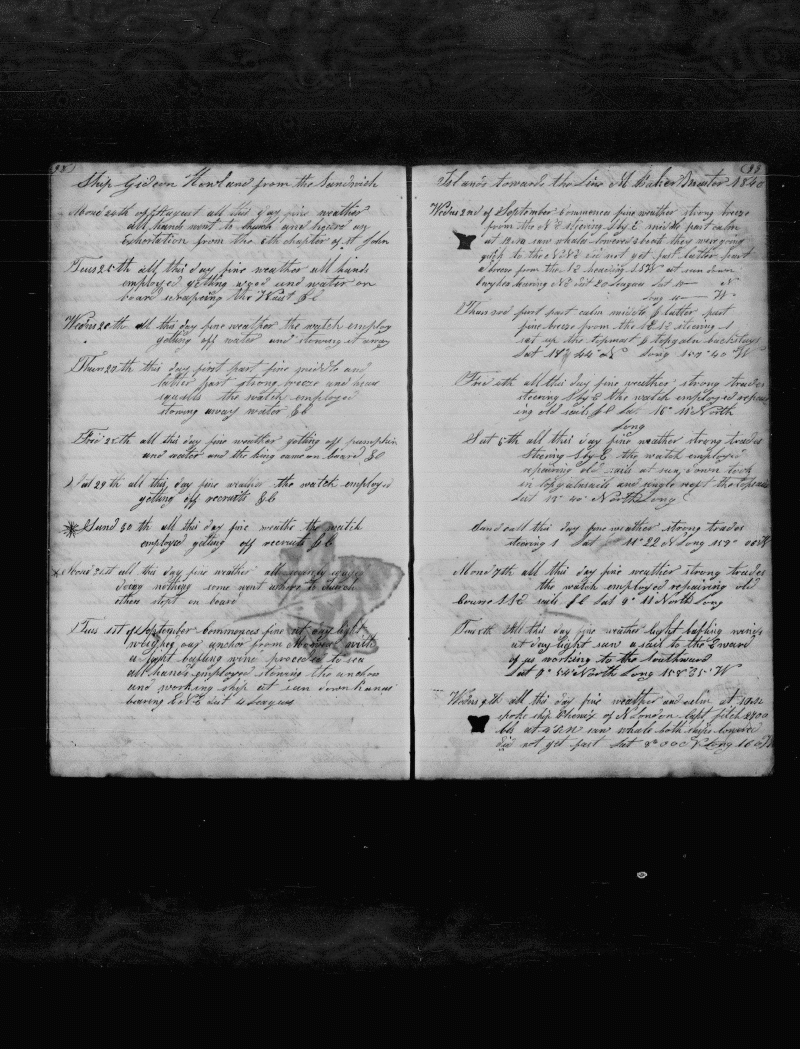 Ship Gideon Howland from the Sandwich
Mond 24th of August all this day fine weather
all hands went to church and heard an
Exhortation from the 6th chapter of St John
Tues 25th all this day fine weather all hands
employed getting wood and water on
board wraping the Waist &c
Wedns 26th all this day fine weather the watch employ
getting off water and stowing it away
Thurs 27th this day first part fine middle and
latter part strong breeze and heavy
squalls the watch employed
stowing away water &c
Frid 28th all this day fine weather getting off pumpkin
and water and the king came on board &c
Sat 29th all this day fine weather the watch employed
getting off recruits &c
Sund 30th all this day fine weather the watch
employed getting off recruits &c
Mond 31st all this day fine weather all
doing nothing some went ashore to church
others slept on board
Tues 1st of September commences fine at day light
weighed our anchor from with
a light baffling wind proceded to sea
all hands employed stowing the anchor
and working ship at sun down
bearing ENE dist 4 Leagues
Islands towards the Line M Baker Master 1840
Wedns 2nd of September commences fine weather strong breeze
from the NE steering S by E middle part calm
at saw whales lowered boats they were going
quick to the did not get fast latter part
a breeze from the heading at sun down
bearing NE dist 20 Leagues Lat N
Long W
Thurs 3rd first part calm middle & latter part
fine breeze from the steering S
set up the topmast & topgaln backstays
Lat 18 44 N Long 157 40 W
Frid 4th all this day fine weather strong trades
steering S by E the watch employed repair
ing old sails &c Lat 16 North
Long
Sat 5th all this day fine weather strong trades
Steering S by E the watch employed
repairing old sails at sun down took
in topgalnsails and single reeft the topsails
Lat 13 40 North Long
Sund all this day fine weather strong trades
steering S Lat 11 22 N Long 157 00 W
Mond 7th all this day fine weather strong trades
the watch employed repairing old
Course sails &c Lat 9 North Long
Tues 8th all this day fine weather light baffling winds
at day light saw a sail to the Eward
of us working to the Southward
Lat 8 54 North Long W
Wedns 9th all this day fine weather and calm at
spoke ship Phenix of N London Capt Fitch 2700
bls at saw whale both ships lowered
did not get fast Lat 8 00 N Long 160 W